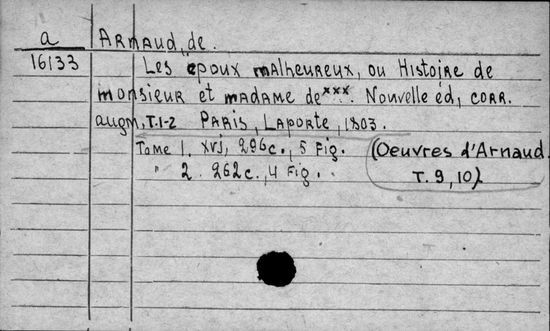 a Arnaud, de.
16133 Les époux malheureux, ou Histoire de
monsieur et madame de***. Nouvelle éd, corr.
augm, T.1-2 Paris, Laporte, 1803.
Tome 1. xvj, 296c., 5 Fig. (Oeuvres d'Arnaud.
" 2. 262c., 4 Fig. T. 9, 10)